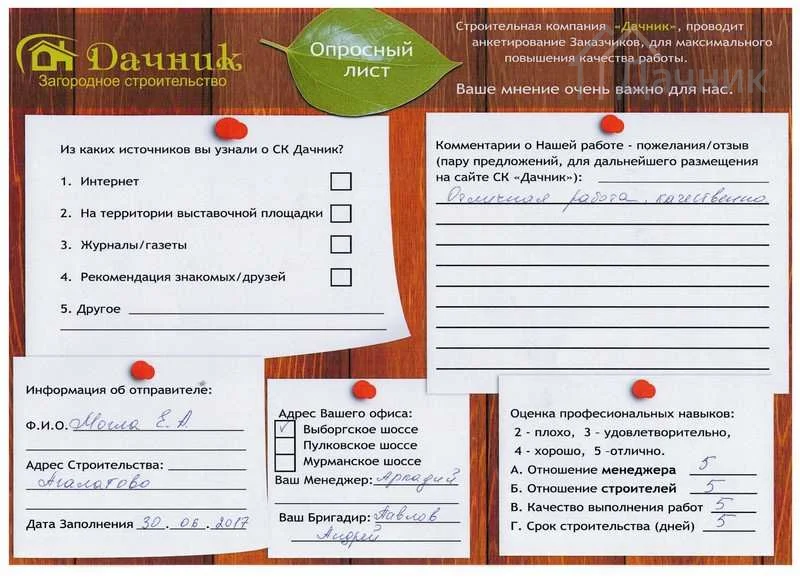 Дачник
Загородное строительство
Опросный
лист
Строительная компания «Дачник», проводит
анкетирование Заказчиков, для максимального
повышения качества работы.
Ваше мнение очень важно для нас.
Дачник
Из каких источников вы узнали о СК Дачник?
1. Интернет
2. На территории выставочной площадки
3. Журналы/газеты
4. Рекомендация знакомых/друзей
5. Другое
Комментарии о Нашей работе - пожелания/отзыв
(пару предложений, для дальнейшего размещения
на сайте СК «Дачник»):
Отличная работа, качественно
Информация об отправителе:
Ф.И.О. Е. А.
Адрес Строительства:
Агалатово
Дата Заполнения 30 . 06 . 2017
Адрес Вашего офиса:
✓ Выборгское шоссе
Пулковское шоссе
Мурманское шоссе
Ваш Менеджер: Аркадий
Ваш Бригадир: Павлов
Андрей
Оценка професиональных навыков:
2 - плохо, 3 - удовлетворительно,
4 - хорошо, 5 -отлично.
А. Отношение менеджера 5
Б. Отношение строителей 5
В. Качество выполнения работ 5
Г. Срок строительства (дней) 5